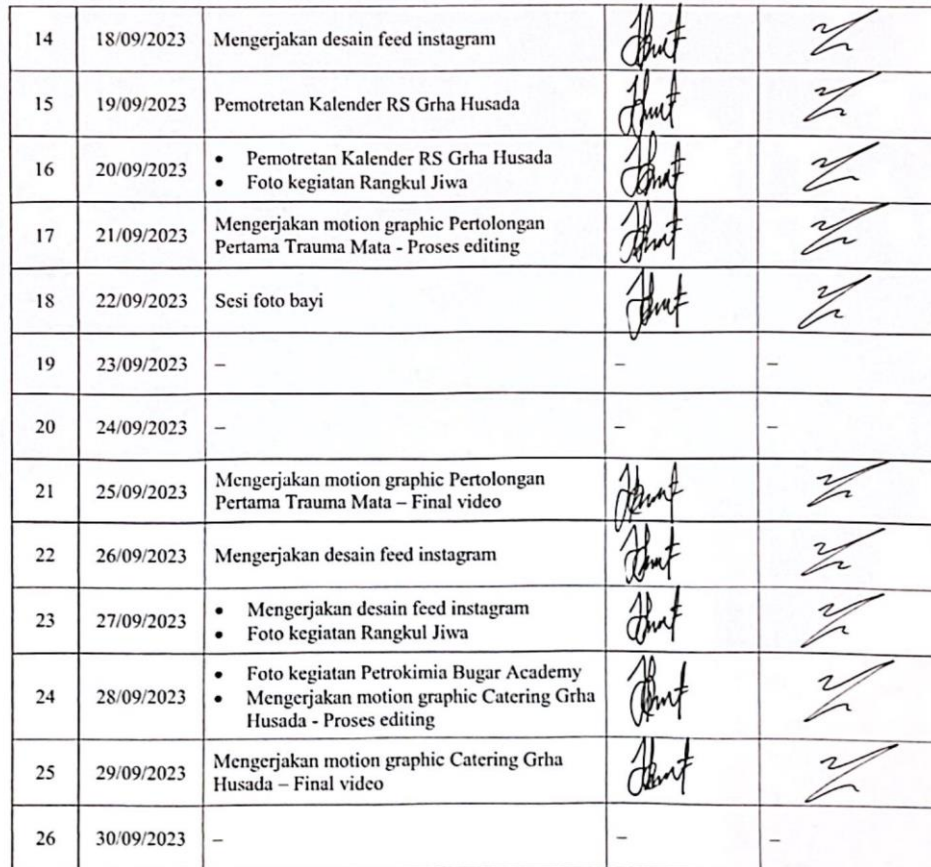 14 18/09/2023 Mengerjakan desain feed instagram
15 19/09/2023 Pemotretan Kalender RS Grha Husada
16 20/09/2023 • Pemotretan Kalender RS Grha Husada
• Foto kegiatan Rangkul Jiwa
17 21/09/2023 Mengerjakan motion graphic Pertolongan
Pertama Trauma Mata - Proses editing
18 22/09/2023 Sesi foto bayi
19 23/09/2023 – – –
20 24/09/2023 – – –
21 25/09/2023 Mengerjakan motion graphic Pertolongan
Pertama Trauma Mata – Final video
22 26/09/2023 Mengerjakan desain feed instagram
23 27/09/2023 • Mengerjakan desain feed instagram
• Foto kegiatan Rangkul Jiwa
24 28/09/2023 • Foto kegiatan Petrokimia Bugar Academy
• Mengerjakan motion graphic Catering Grha
Husada - Proses editing
25 29/09/2023 Mengerjakan motion graphic Catering Grha
Husada – Final video
26 30/09/2023 – – –